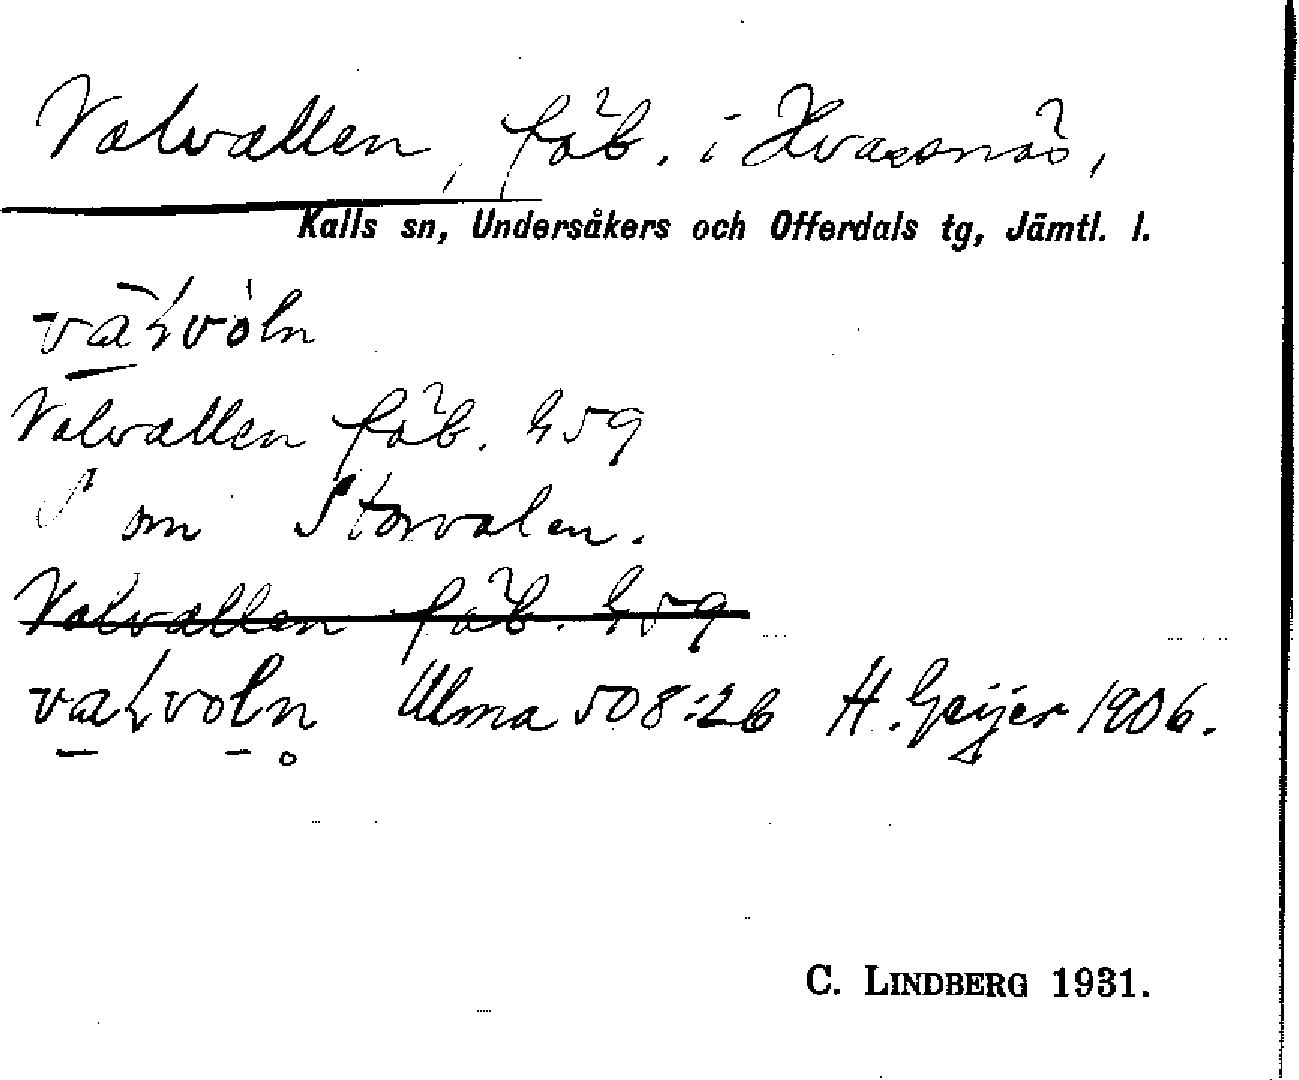 Valvallen, fäb. i Kvarnnäs,
Kalls sn, Undersåkers och Offerdals tg, Jämtl. l.
Valvallen fäb. G59
S om Storvalen.
Valvallen fäb. G59
Ulma 508:26 H. Geijer 1906.
C. LINDBERG 1931.